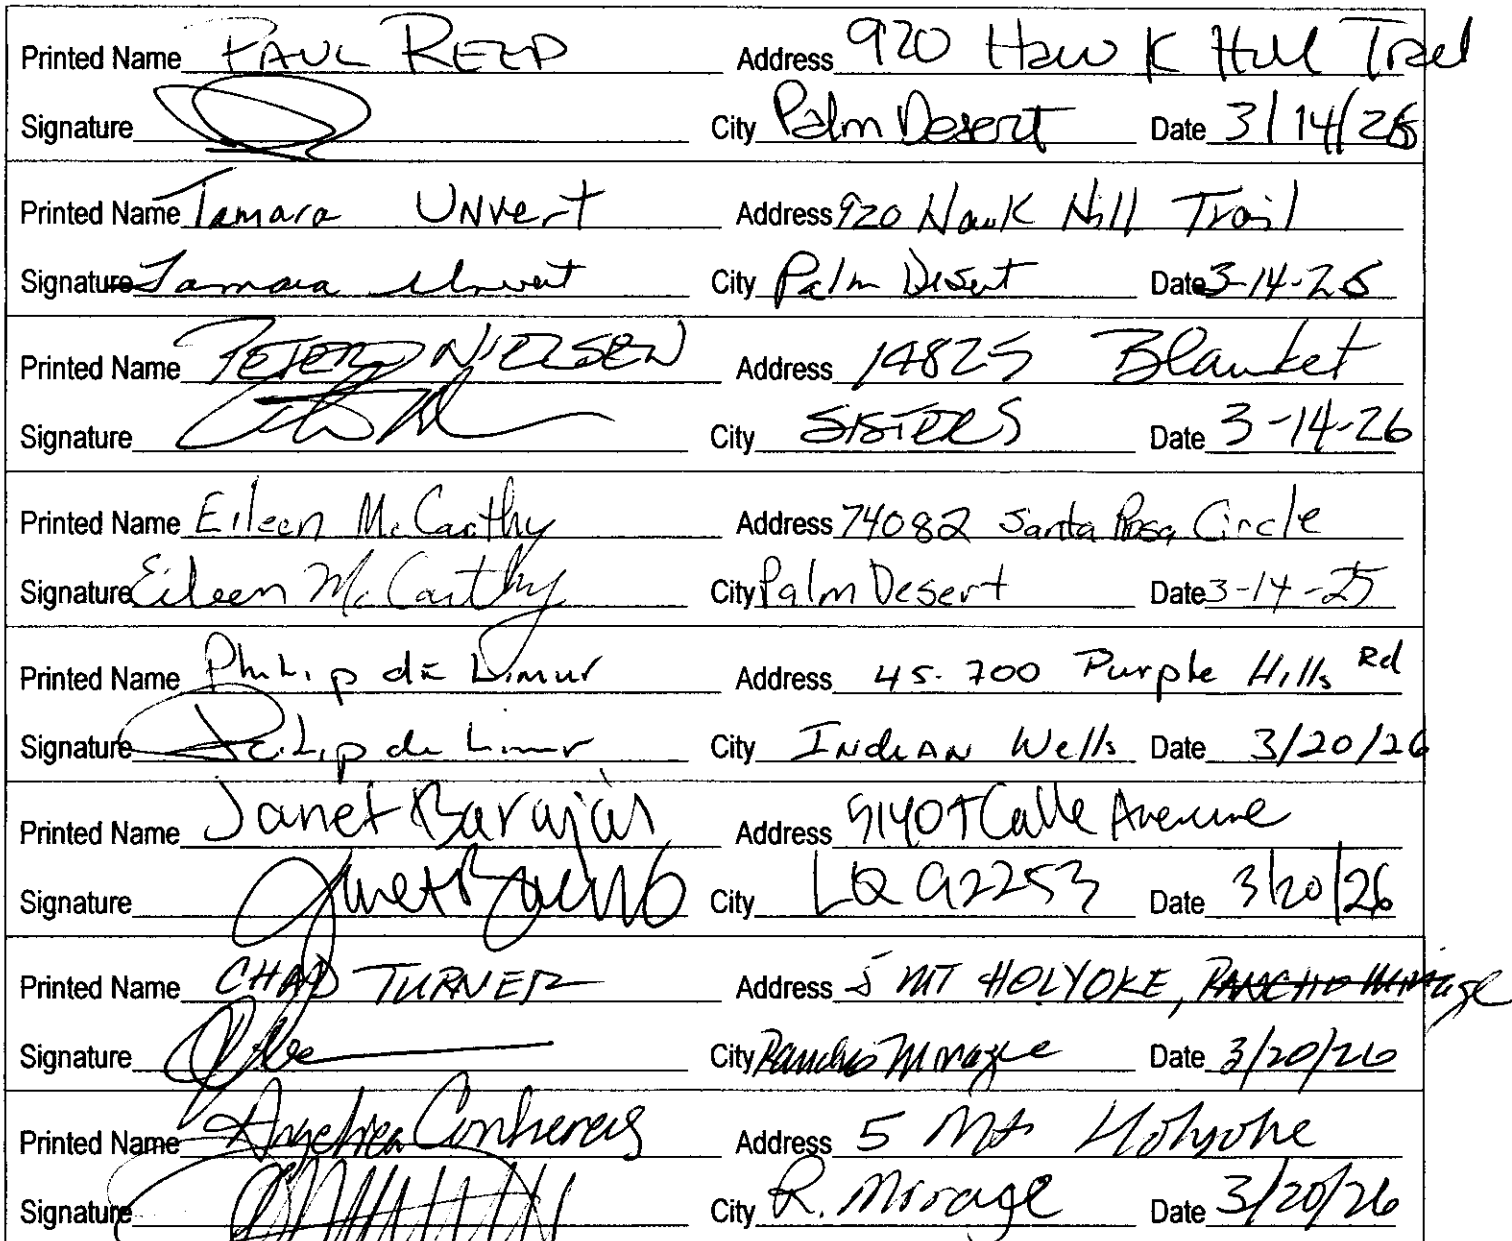 Printed Name PAUL REED Address 920 Hawk Hill Trail
Signature City Palm Desert Date 3/14/26
Printed Name Tamara Unvert Address 920 Hawk Hill Trail
Signature Tamara Unvert City Palm Desert Date 3-14-26
Printed Name PETER NIELSEN Address 14825 Blanket
Signature City SISTERS Date 3-14-26
Printed Name Eileen McCarthy Address 74082 Santa Rosa Circle
Signature Eileen McCarthy City Palm Desert Date 3-14-25
Printed Name Philip de Limur Address 45-700 Purple Hills Rd
Signature Philip de Limur City Indian Wells Date 3/20/26
Printed Name Janet Barajas Address Calle Avenune
Signature City LQ 92253 Date 3/20/26
Printed Name CHAD TURNER Address 5 MT HOLYOKE, RANCHO Mirage
Signature City Rancho Mirage Date 3/20/26
Printed Name Angelica Contreras Address 5 Mt Holyoke
Signature City R. Mirage Date 3/20/26